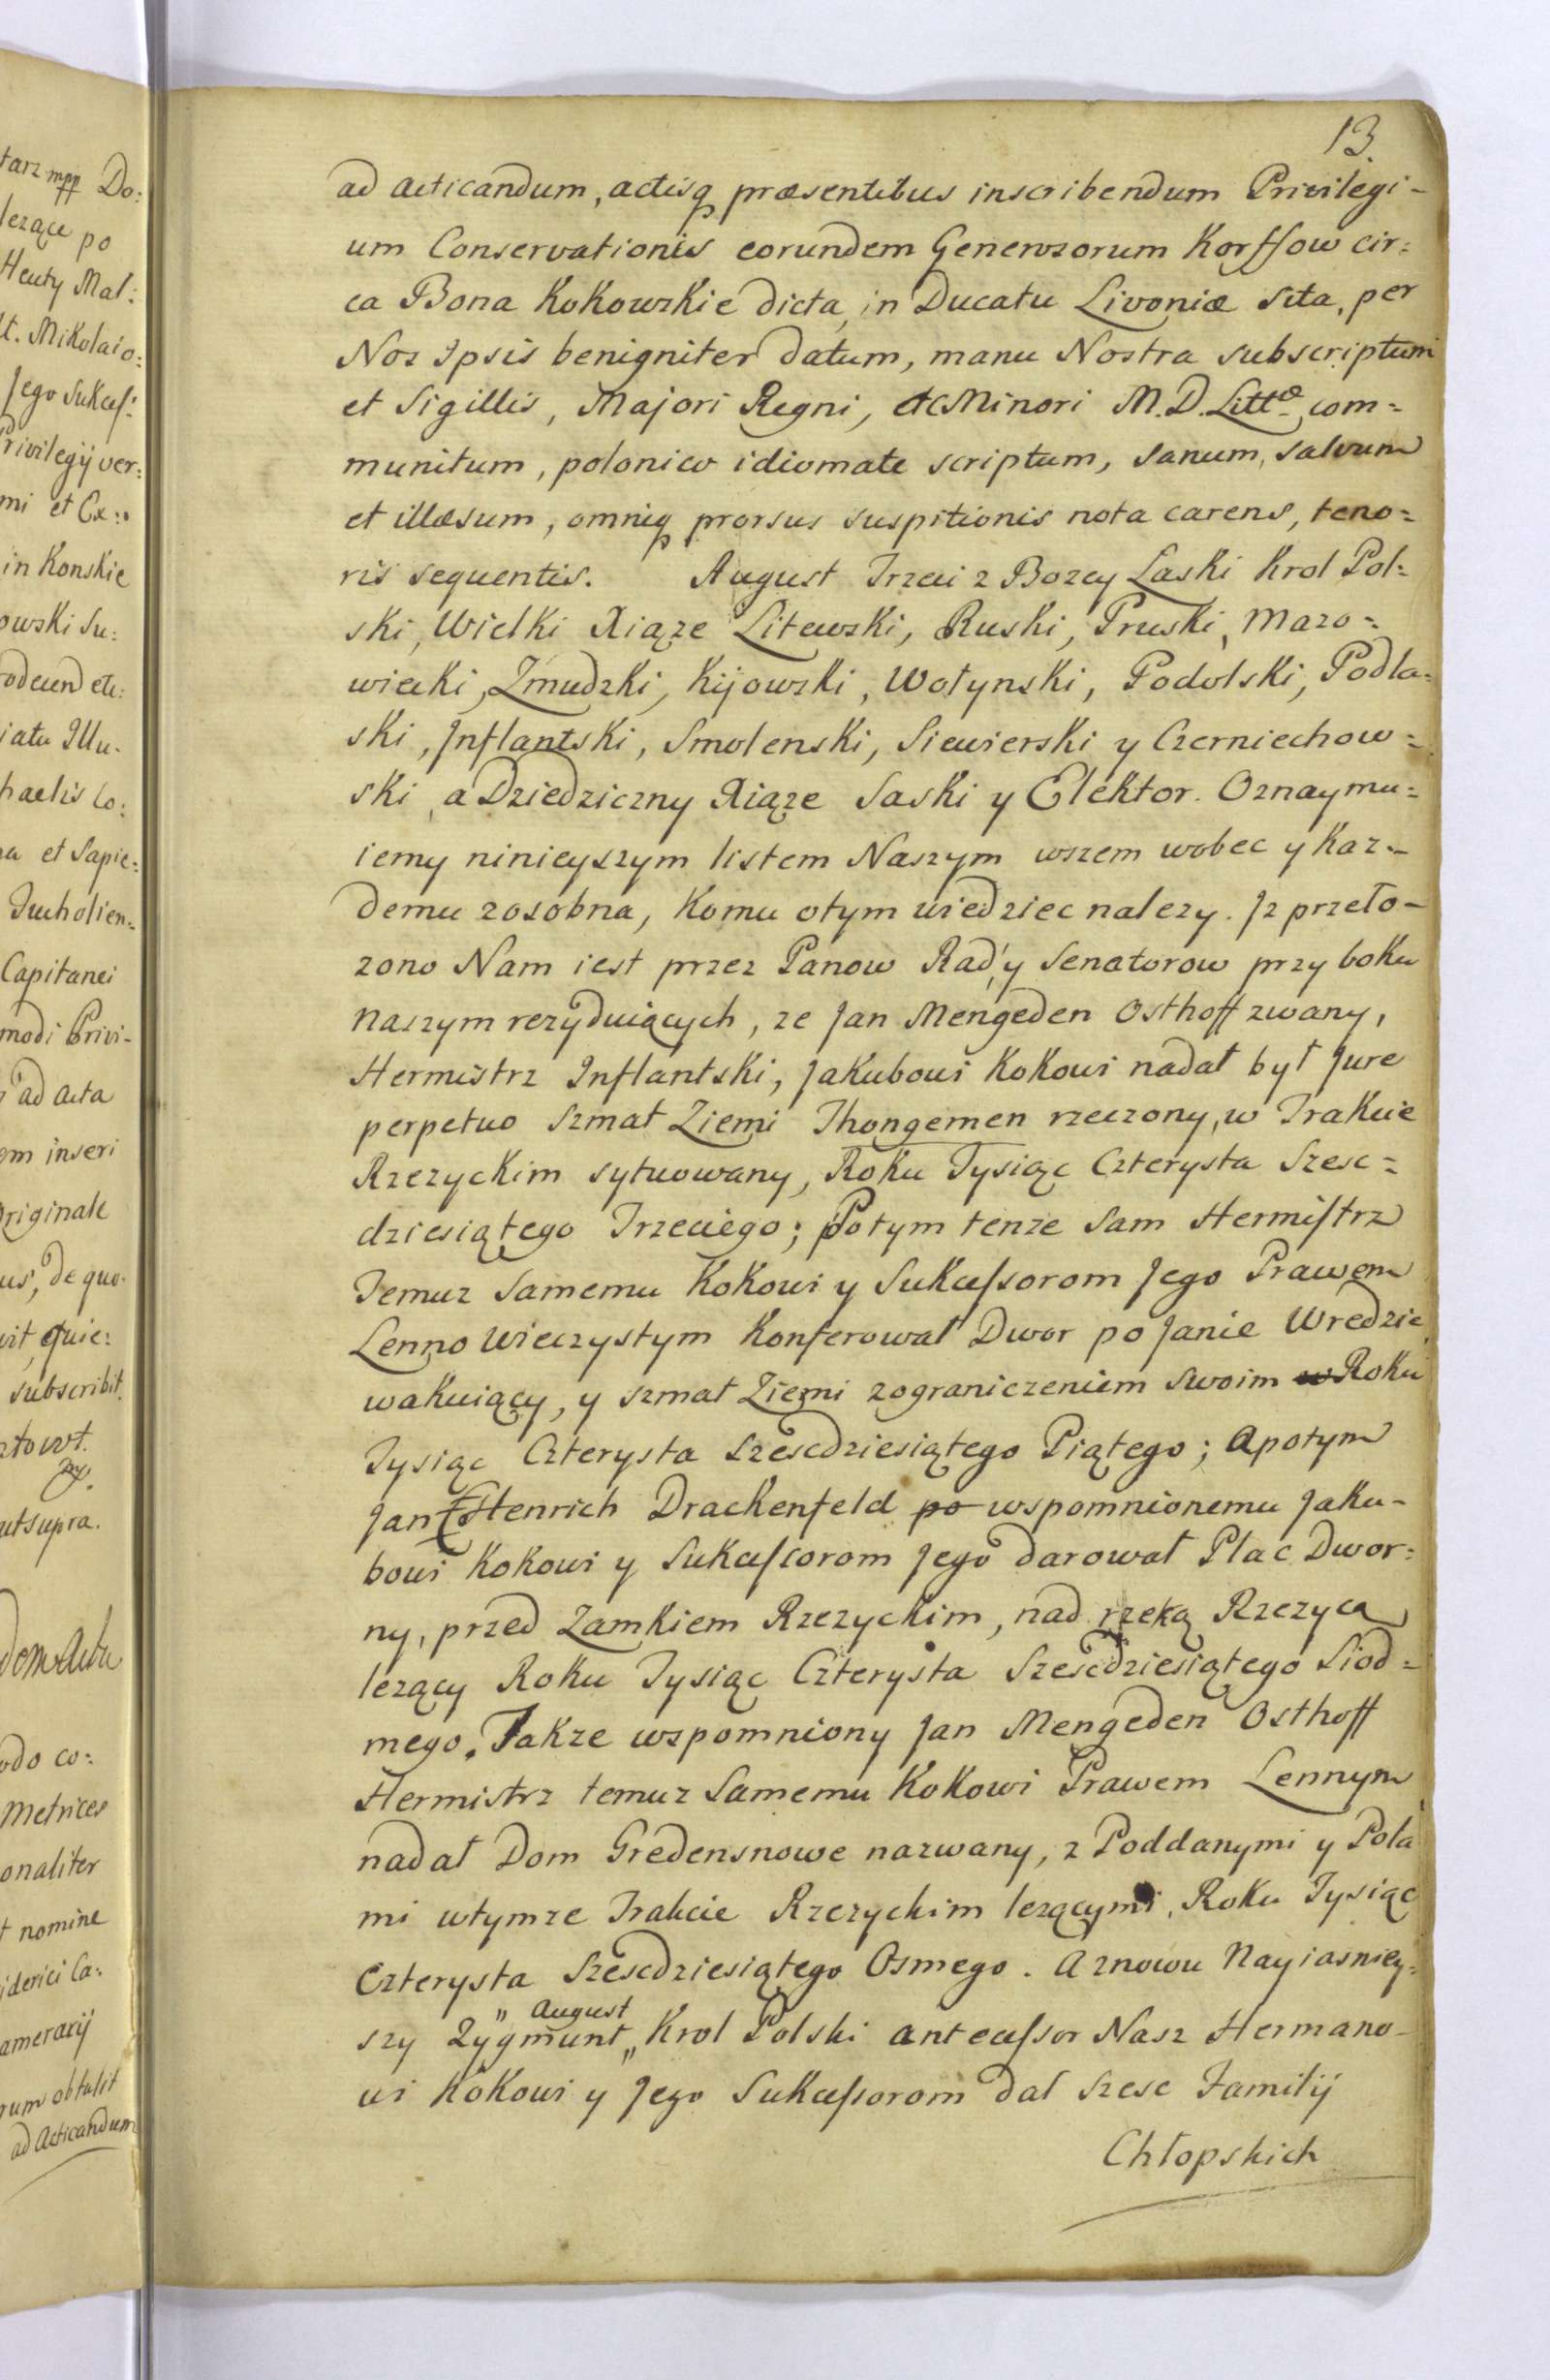 tarz mpp Do:
lezące po
Heuty Mal:
lt. Mikolaio:
Jego Sukces:
Privilegij ver:
mi et Ex:
in Konskie
owski Su:
rodeund etc:
iatu Illu-
haelis Co:
na et Sapie:
Tucholien:
Capitanei
modi Privi-
ad acta
em inseri
Originale
us, de quo
vit, quie:
subscribit.
utsupra.
odo co:
Metrices
onaliter
t nomine
iderici Ca:
amerarij
rum obtulit
ad Acticandum
13.
ad acticandum, actisq præsentibus inscribendum Privilegi-
um Conservationis eorundem Generosorum Korffow cir=
ca Bona Kokowskie dicta, in Ducatu Livoniæ sita, per
Nos Ipsis benigniter datum, manu Nostra subscriptum
et Sigillis, Majori Regni, ac Minori M.D. Littæ com=
munitum, polonico idiomate scriptum, sanum, salvum
et illæsum, omniq prorsus suspitionis nota carens, teno=
ris sequentis. August Trzeci z Bozey Laski Krol Pol=
ski, Wielki Xiąze Litewski, Ruski, Pruski, Mazo=
wiecki, Zmudzki, Kijowski, Wołynski, Podolski, Podla=
ski, Inflantski, Smolenski, Siewierski y Czerniechow=
ski, a Dziedziczny Xiąze Saski y Elektor. Oznaymu=
iemy ninieyszym listem Naszym wszem wobec y kaz-
demu zosobna, komu otym wiedziec nalezy. Jz przeło-
zono Nam iest przez Panow Rad, y Senatorow przy boku
naszym rezyduiących, ze Jan Mengeden Osthoff zwany,
Hermistrz Inflantski, Jakubowi Kokowi nadał był Jure
perpetuo szmat Ziemi Thongemen rzeczony, w Trakcie
Rzezyckim sytuowany, Roku Tysiąc Czterysta Szesc=
dziesiątego Trzeciego; Potym tenze sam Hermistrz
Temuz samemu Kokowi y Sukcessorom Jego Prawem
Lenno wieczystym konferował Dwor po Janie Wredzie
wakuiący, y szmat Ziemi zograniczeniem swoim w Roku
Tysiąc Czterysta Szescdziesiątego Piątego; a potym
Jan Henrich Drackenfeld po wspomnionemu Jaku-
bowi Kokowi y Sukcessorom Jego darował Plac Dwor=
ny, przed Zamkiem Rzezyckim, nad rzeką Rzezyca
lezący Roku Tysiąc Czterysta Szescdziesiątego Siod=
mego. Takze wspomniony Jan Mengeden Osthoff
Hermistrz temuz samemu Kokowi Prawem Lennym
nadał Dom Gredensnowe nazwany, z Poddanymi y Pola
mi wtymze Trakcie Rzezyckim lezącymi, Roku Tysiąc
Czterysta Szescdziesiątego Osmego. A znowu Nayiasniey=
" August
szy Zygmunt „ Krol Polski antecessor Nasz Hermano-
wi Kokowi y Jego Sukcessorom dal szesc Familij
Chłopskich